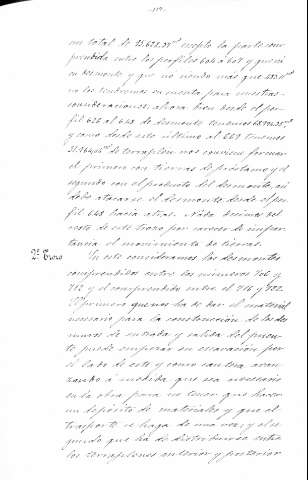 un total de 25.622,38 m3 excepto la parte com-
prendida entre los perfiles 604 á 607 y que es
en desmonte y que no siendo mas que
no los tendremos en cuenta para nuestras
consideraciones: ahora bien desde el per-
fil 622 al 648 de desmonte tenemos
y como desde este último al 669 tenemos
de terraplen nos conviene formar
el primero con tierras de préstamo y el
segundo con el producto del desmonte, asi
debe atacarse el desmonte desde el per-
fil 648 hacia atras. Nada decimos del
resto de este trozo por carecer de impor-
tancia el movimiento de tierras.
2º Trozo
En este consideramos los desmontes
comprendidos entre los números 706 y
712 y el comprendido entre el 716 y 722.
El primero que nos ha de dar el material
necesario para la construcción de los dos
muros de entrada y salida del puen-
te puede empezar su escavación por
el lado de este y como cantera avan-
zando á medida que sea necesario
en la obra para no tener que hacer
un depósito de materiales y que el
trasporte se haga de una vez y el se-
gundo que ha de distribuirse entre
los terraplenes anterior y posterior